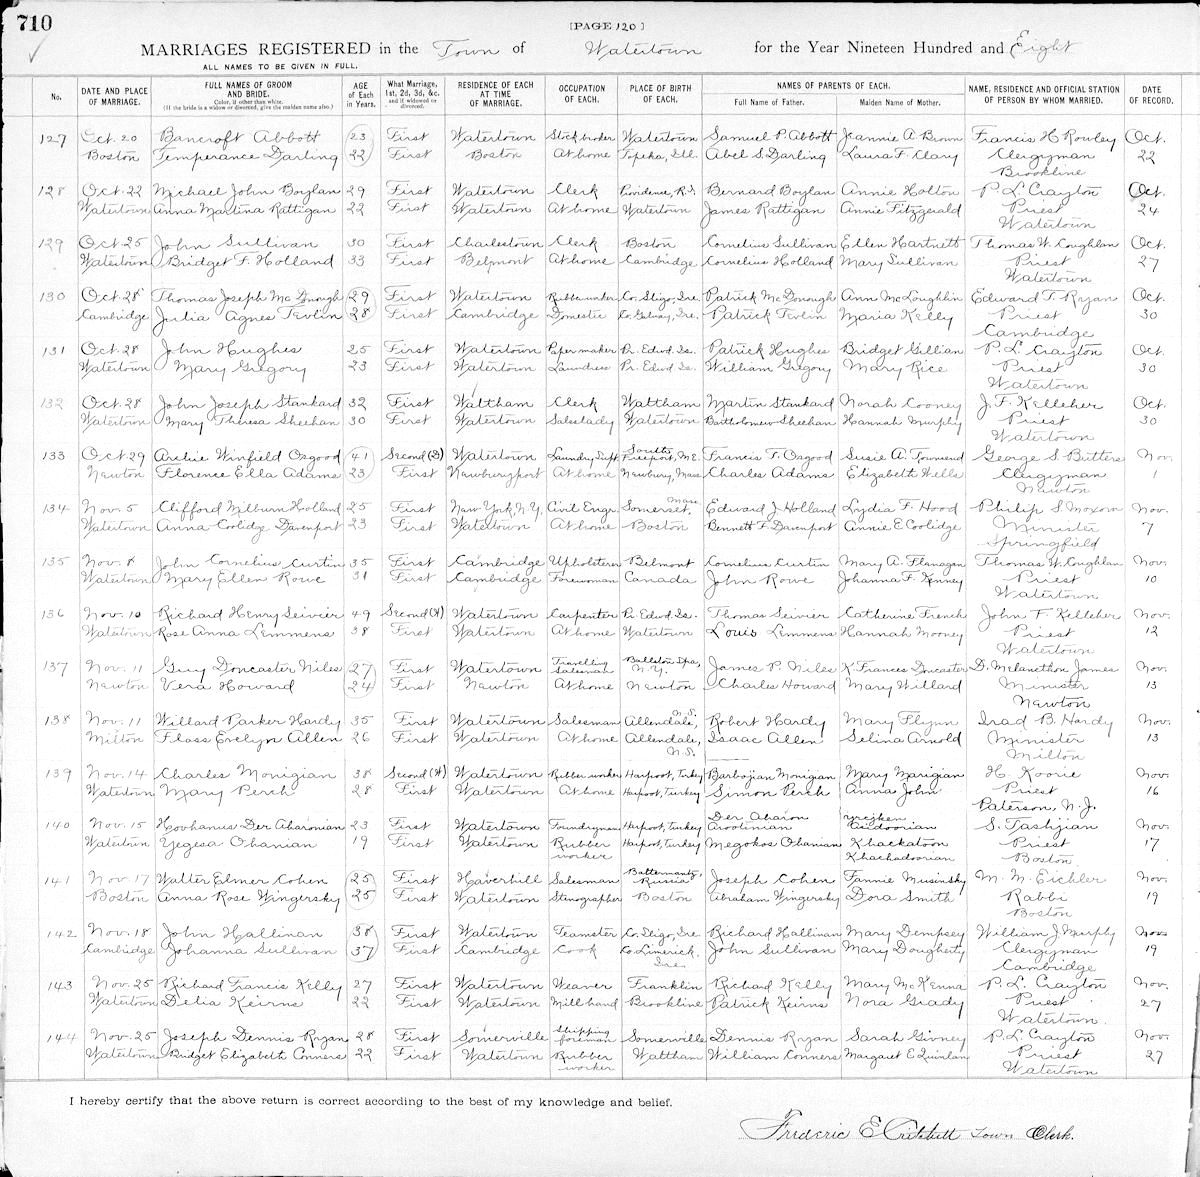 710
[PAGE 120]
MARRIAGES REGISTERED in the Town of Watertown for the Year Nineteen Hundred and Eight
ALL NAMES TO BE GIVEN IN FULL.
No. DATE AND PLACE OF MARRIAGE. FULL NAMES OF GROOM AND BRIDE. Color, if other than white. (If the bride is a widow or divorced, give the maiden name also.) AGE of Each in Years. What Marriage, 1st, 2d, 3d, &c. and if widowed or divorced. RESIDENCE OF EACH AT TIME OF MARRIAGE. OCCUPATION OF EACH. PLACE OF BIRTH OF EACH. NAMES OF PARENTS OF EACH. Full Name of Father. Maiden Name of Mother. NAME, RESIDENCE AND OFFICIAL STATION OF PERSON BY WHOM MARRIED. DATE OF RECORD.
127 Oct. 20 Bancroft Abbott 23 First Watertown Stock broker Watertown Samuel P. Abbott Jeannie A. Brown Francis H Rowley Oct.
Boston Temperance Darling 22 First Boston At home Topeka, Ill. Abel S. Darling Laura F. Clary Clergyman 22
Brookline
128 Oct. 22 Michael John Boylan 29 First Watertown Clerk Providence, R.I. Bernard Boylan Annie Holton P. L. Crayton Oct.
Watertown Anna Martina Rattigan 22 First Watertown At home Watertown James Rattigan Annie Fitzgerald Priest 24
Watertown
129 Oct. 25 John Sullivan 30 First Charlestown Clerk Boston Cornelius Sullivan Ellen Hartnett Thomas W. Coughlan Oct.
Watertown Bridget F. Holland 33 First Belmont At home Cambridge Cornelius Holland Mary Sullivan Priest 27
Watertown
130 Oct. 28 Thomas Joseph Mc Donough 29 First Watertown Rubber worker Co. Sligo, Ire. Patrick Mc Donough Ann Mc Loughlin Edward T. Ryan Oct.
Cambridge Julia Agnes Tevlin 28 First Cambridge Domestic Co. Galway, Ire. Patrick Tevlin Maria Kelly Priest 30
Cambridge
131 Oct. 28 John Hughes 25 First Watertown Paper maker Pr. Edwd. Is. Patrick Hughes Bridget Gillian P. L. Crayton Oct.
Watertown Mary Gregory 23 First Watertown Laundress Pr. Edwd. Is. William Gregory Mary Rice Priest 30
Watertown
132 Oct. 28 John Joseph Stankard 32 First Waltham Clerk Waltham Martin Stankard Norah Cooney J. F. Kelleher Oct.
Watertown Mary Theresa Sheehan 30 First Watertown Saleslady Watertown Bartholomew Sheehan Hannah Murphy Priest 30
Watertown
133 Oct. 29 Archie Winfield Osgood 41 Second (D) Watertown Laundry Supt. South Freeport, ME. Francis T. Osgood Susie A. Townsend George S. Butters Nov.
Newton Florence Ella Adams 23 First Newburyport At home Newbury, Mass Charles Adams Elizabeth Wells Clergyman 1
Newton
134 Nov. 5 Clifford Milburn Holland 25 First New York, N.Y. Civil Engr. Somerset, Mass. Edward J. Holland Lydia F. Hood Philip S Moxom Nov.
Watertown Anna Coolidge Davenport 23 First Watertown At home Boston Bennett F Davenport Annie E Coolidge Minister 7
Springfield
135 Nov. 8 John Cornelius Curtin 35 First Cambridge Upholsterer Belmont Cornelius Curtin Mary A. Flanagan Thomas W. Coughlan Nov.
Watertown Mary Ellen Rowe 31 First Cambridge Forewoman Canada John Rowe Johanna F. Kenney Priest 10
Watertown
136 Nov. 10 Richard Henry Seivier 49 Second (W) Watertown Carpenter Pr. Edwd. Is. Thomas Seivier Catherine French John F. Kelleher Nov.
Watertown Rose Anna Lemmens 38 First Watertown At home Watertown Louis Lemmens Hannah Mooney Priest 12
Watertown
137 Nov. 11 Guy Doncaster Niles 27 First Watertown Travelling Salesman Ballston Spa, N.Y. James P. Niles K. Frances Doncaster D. Melancthon James Nov.
Newton Vera Howard 24 First Newton At home Newton Charles Howard Mary Willard Minister 13
Newton
138 Nov. 11 Willard Parker Hardy 35 First Watertown Salesman Allendale, N.S. Robert Hardy Mary Flynn Irad B. Hardy Nov.
Milton Floss Evelyn Allen 26 First Watertown At home Allendale, N.S. Isaac Allen Selina Arnold Minister 13
Milton
139 Nov. 14 Charles Monigian 38 Second (W) Watertown Rubber worker Harpoot, Turkey Barbojian Monigian Mary Marigian H. Koorie Nov.
Watertown Mary Perch 28 First Watertown At home Harpoot, Turkey Simon Perch Anna John Priest 16
Paterson, N. J.
140 Nov. 15 Hovhanus Der Aharonian 23 First Watertown Foundryman Harpoot, Turkey Der Aharon S. Tashjian Nov.
Watertown Yegesa Ohanian 19 First Watertown Rubber worker Harpoot, Turkey Megokos Ohanian Khackatoon Khachadoorian Priest 17
Boston
141 Nov. 17 Walter Elmer Cohen 25 First Haverhill Salesman Russia Joseph Cohen Fannie Musinsky M. M. Eichler Nov.
Boston Anna Rose Wingersky 25 First Stenographer Boston Abraham Wingersky Dora Smith Rabbi 19
Boston
142 Nov. 18 John Hallinan 38 First Watertown Teamster Co. Sligo, Ire Richard Hallinan Mary Dempsey William J. Murphy Nov.
Cambridge Johanna Sullivan 37 First Cambridge Cook Co. Limerick, Ire. John Sullivan Mary Dougherty Clergyman 19
Cambridge
143 Nov. 25 Richard Francis Kelly 27 First Watertown Weaver Franklin Richard Kelly Mary Mc Kenna P. L. Crayton Nov.
Watertown Delia Keirns 22 First Watertown Mill hand Brookline Patrick Keirns Nora Grady Priest 27
Watertown.
144 Nov. 25 Joseph Dennis Ryan 28 First Somerville Shipping foreman Somerville Dennis Ryan Sarah Givney P. L. Crayton Nov.
Watertown Bridget Elizabeth Conners 22 First Watertown Rubber worker Waltham William Conners Margaret E Quinlan Priest 27
Watertown
I hereby certify that the above return is correct according to the best of my knowledge and belief.
Frederic E Critchett Town Clerk.